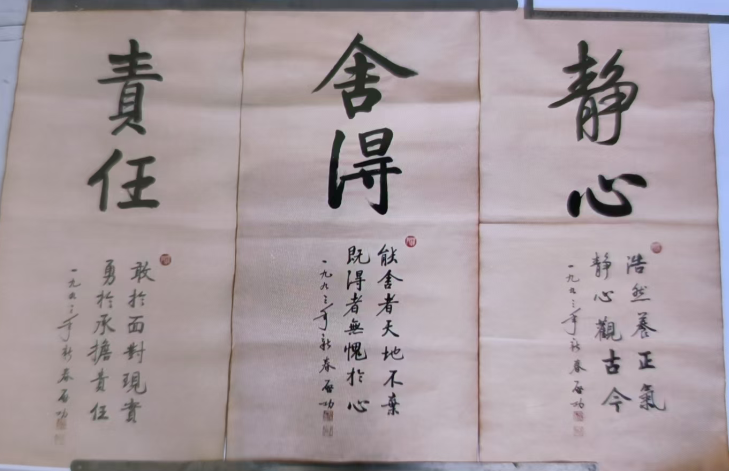 靜心
浩然養正氣
靜心觀古今
一九九三年新春啟功
舍得
能舍者天地不棄
既得者無愧於心
一九九三年新春啟功
責任
敢於面對現實
勇於承擔責任
一九九三年新春啟功